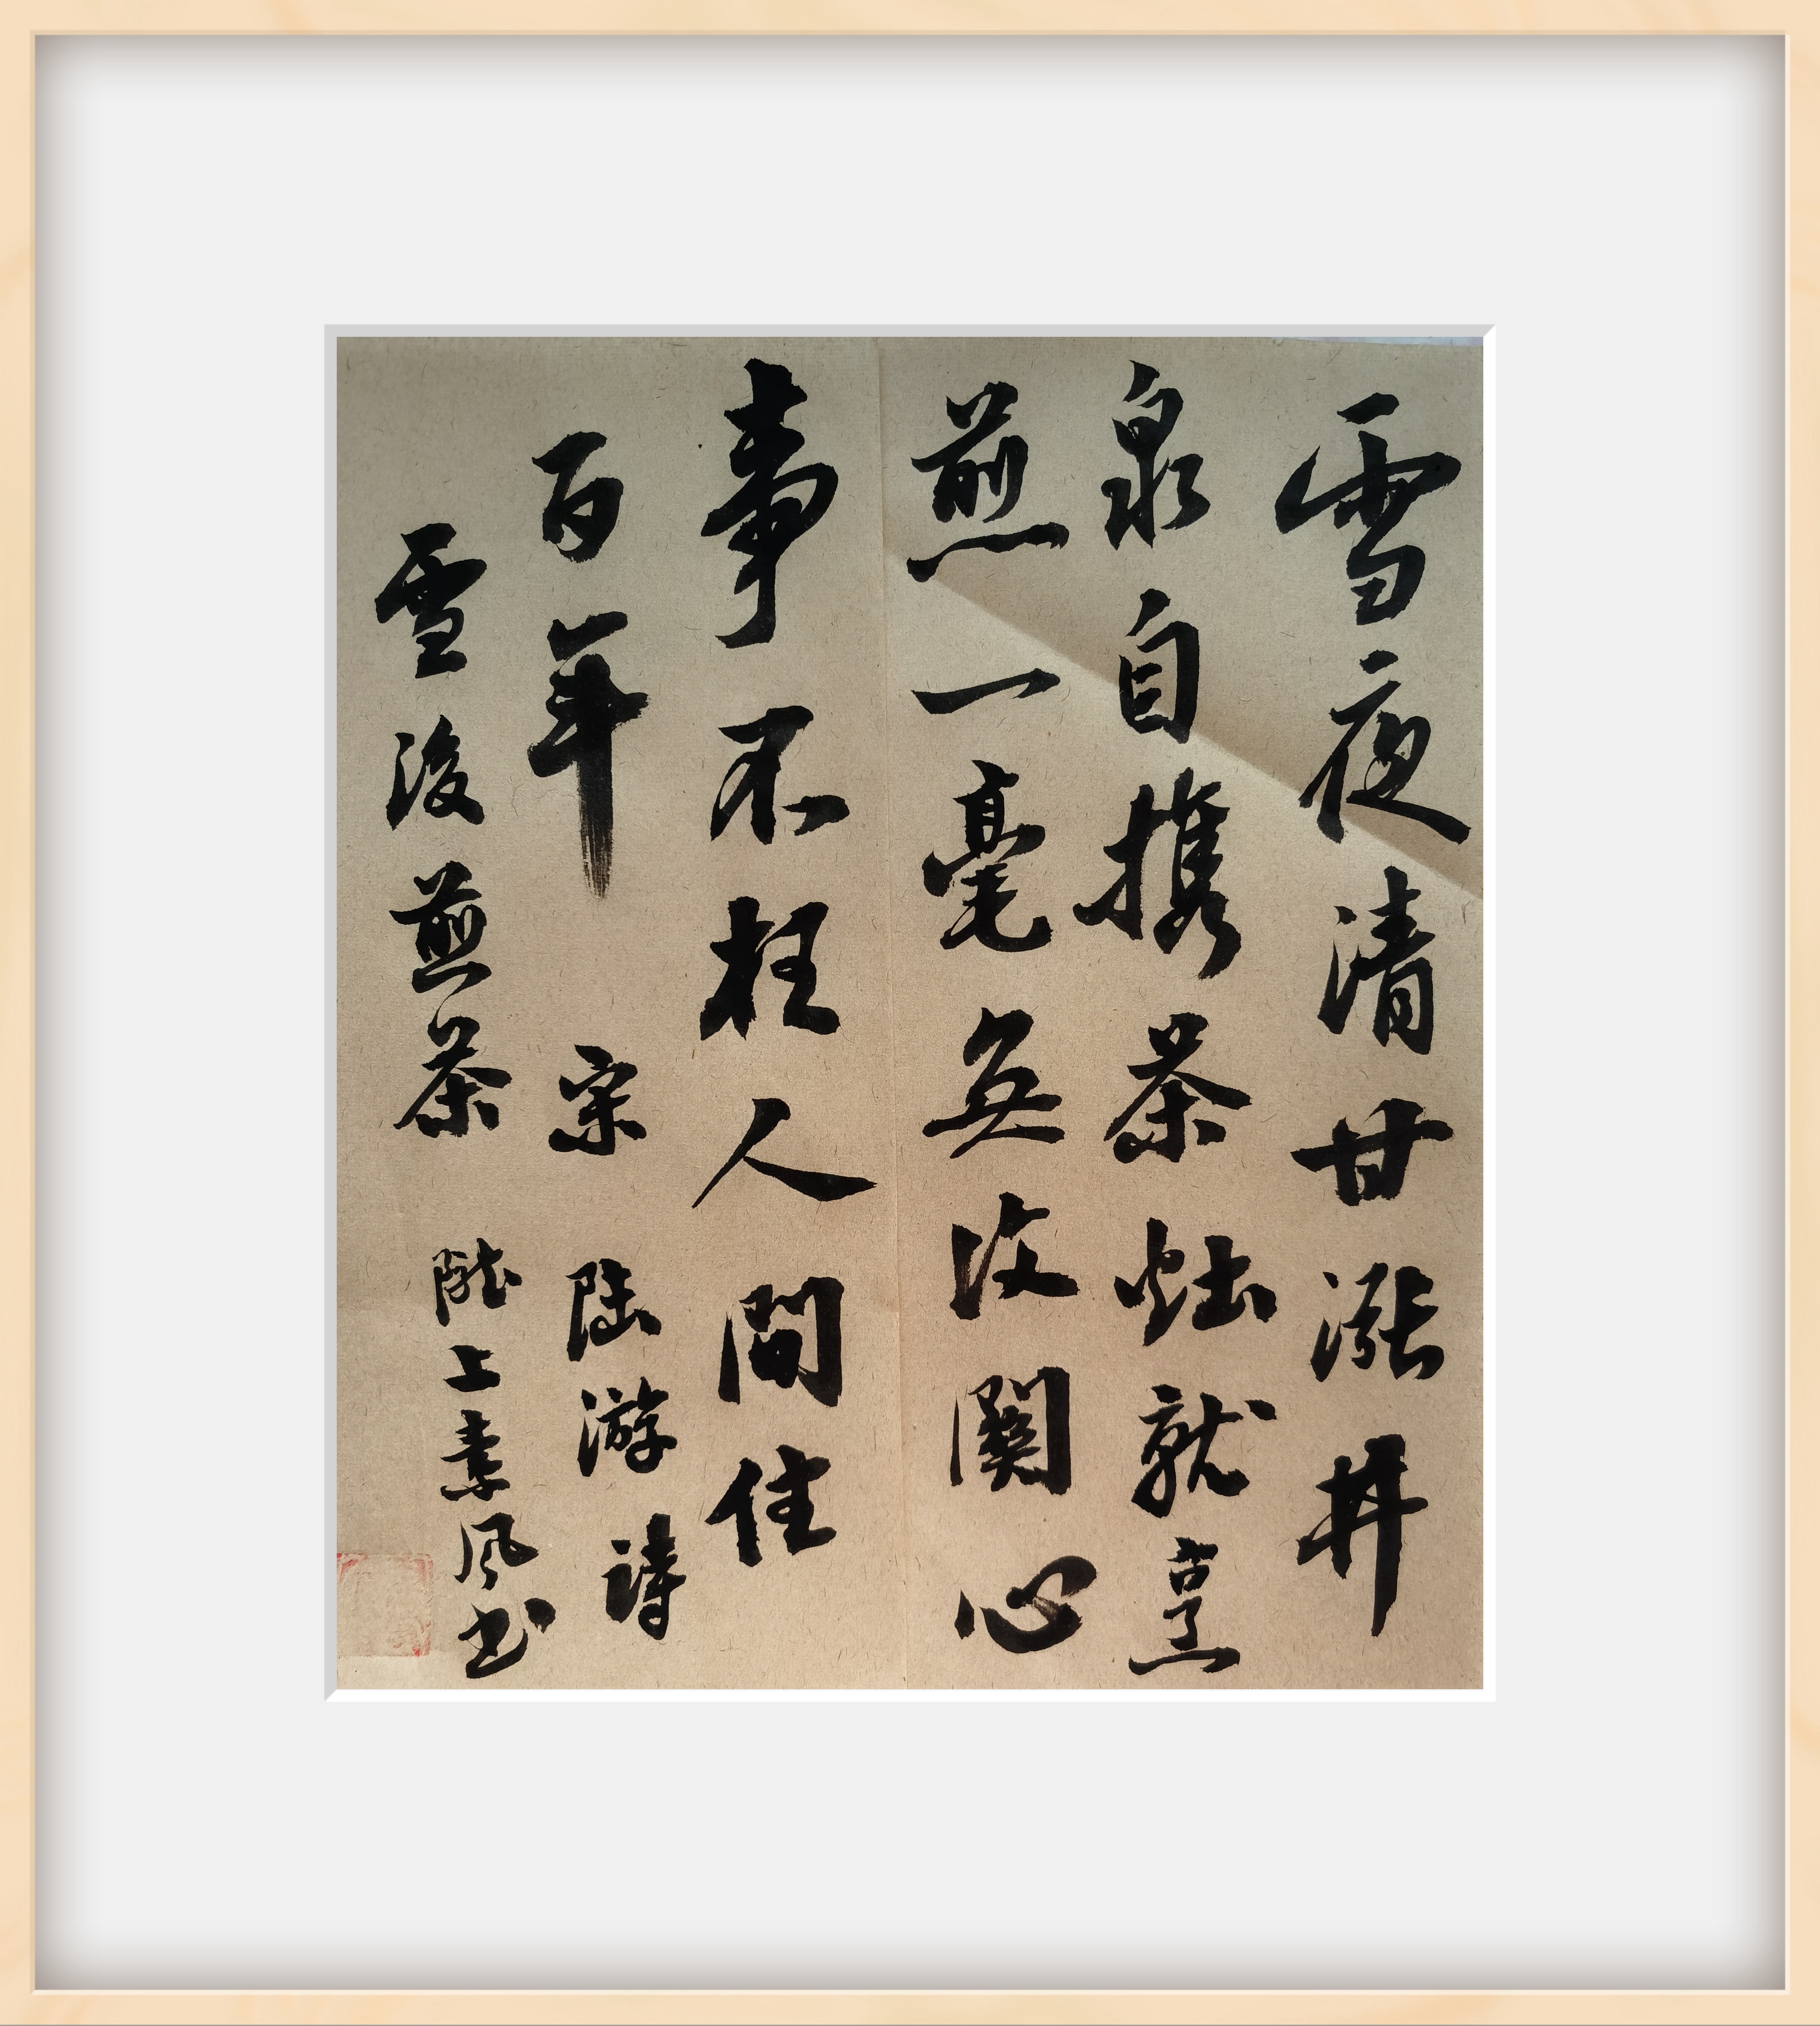 雪夜清甘漲井
泉自携茶灶就烹
煎一毫無復關心
事不枉人間住
百年 宋 陆游 詩
雪後煎茶 隴上素风书